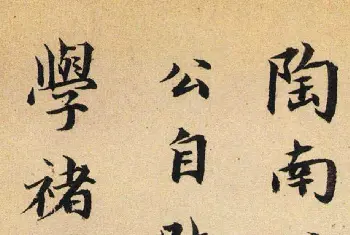 陶南
公自
學褚